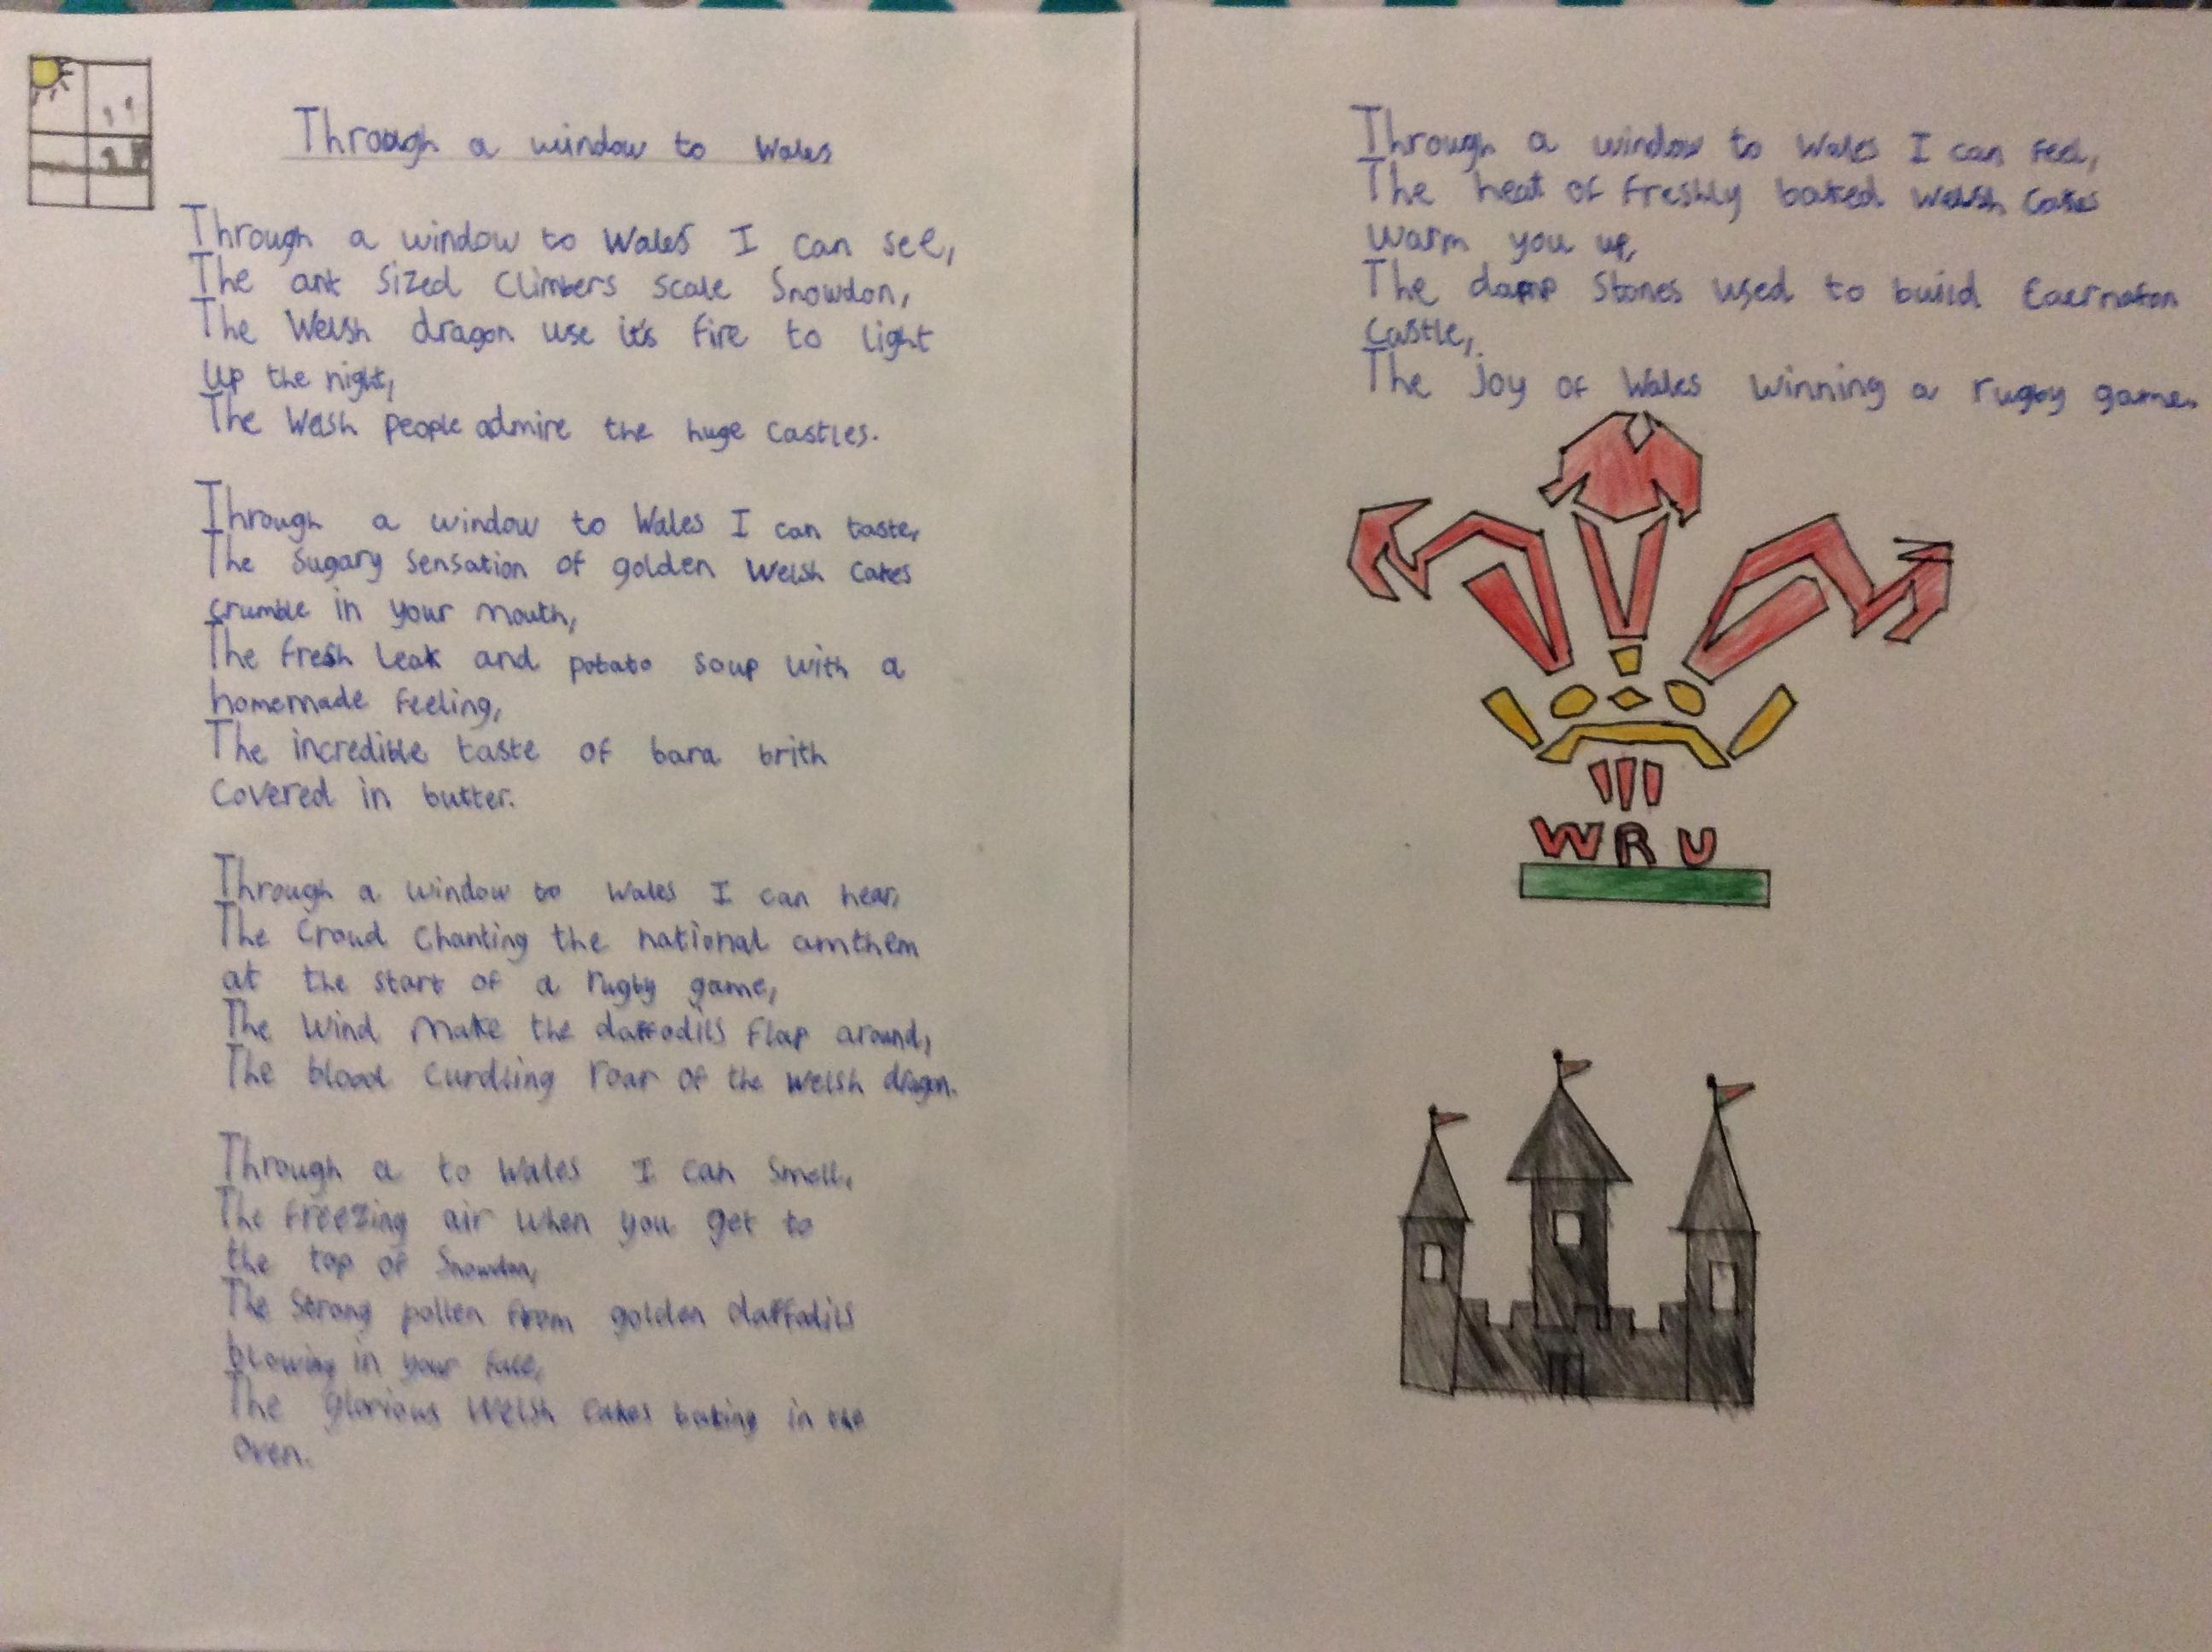 Through a window to Wales
Through a window to Wales I can see,
The ant sized climbers scale Snowdon,
The Welsh dragon use it's fire to light
up the night,
The Welsh people admire the huge castles.
Through a window to Wales I can taste,
The sugary sensation of golden Welsh cakes
crumble in your mouth,
The fresh leak and potato soup with a
homemade feeling,
The incredible taste of bara brith
covered in butter.
Through a window to Wales I can hear,
The croud chanting the national amthem
at the start of a rugby game,
The wind make the daffodils flap around,
The blood curdling roar of the welsh dragon.
Through a to Wales I can smell,
The freezing air when you get to
the top of Snowdon,
The strong pollen from golden daffodils
blowing in your face,
The glorious Welsh cakes baking in the
oven.
Through a window to Wales I can feel,
The heat of freshly baked Welsh cakes
warm you up,
The damp stones used to build Caernafon
castle,
The joy of Wales winning a rugby game.
WRU